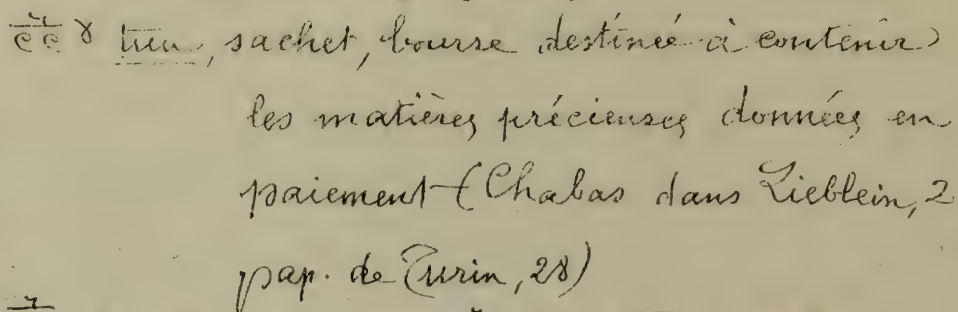 sachet, bourse destinée à contenir
les matières précieuses données en
paiement (Chabas dans Lieblein, 2
pap. de Turin, 28)